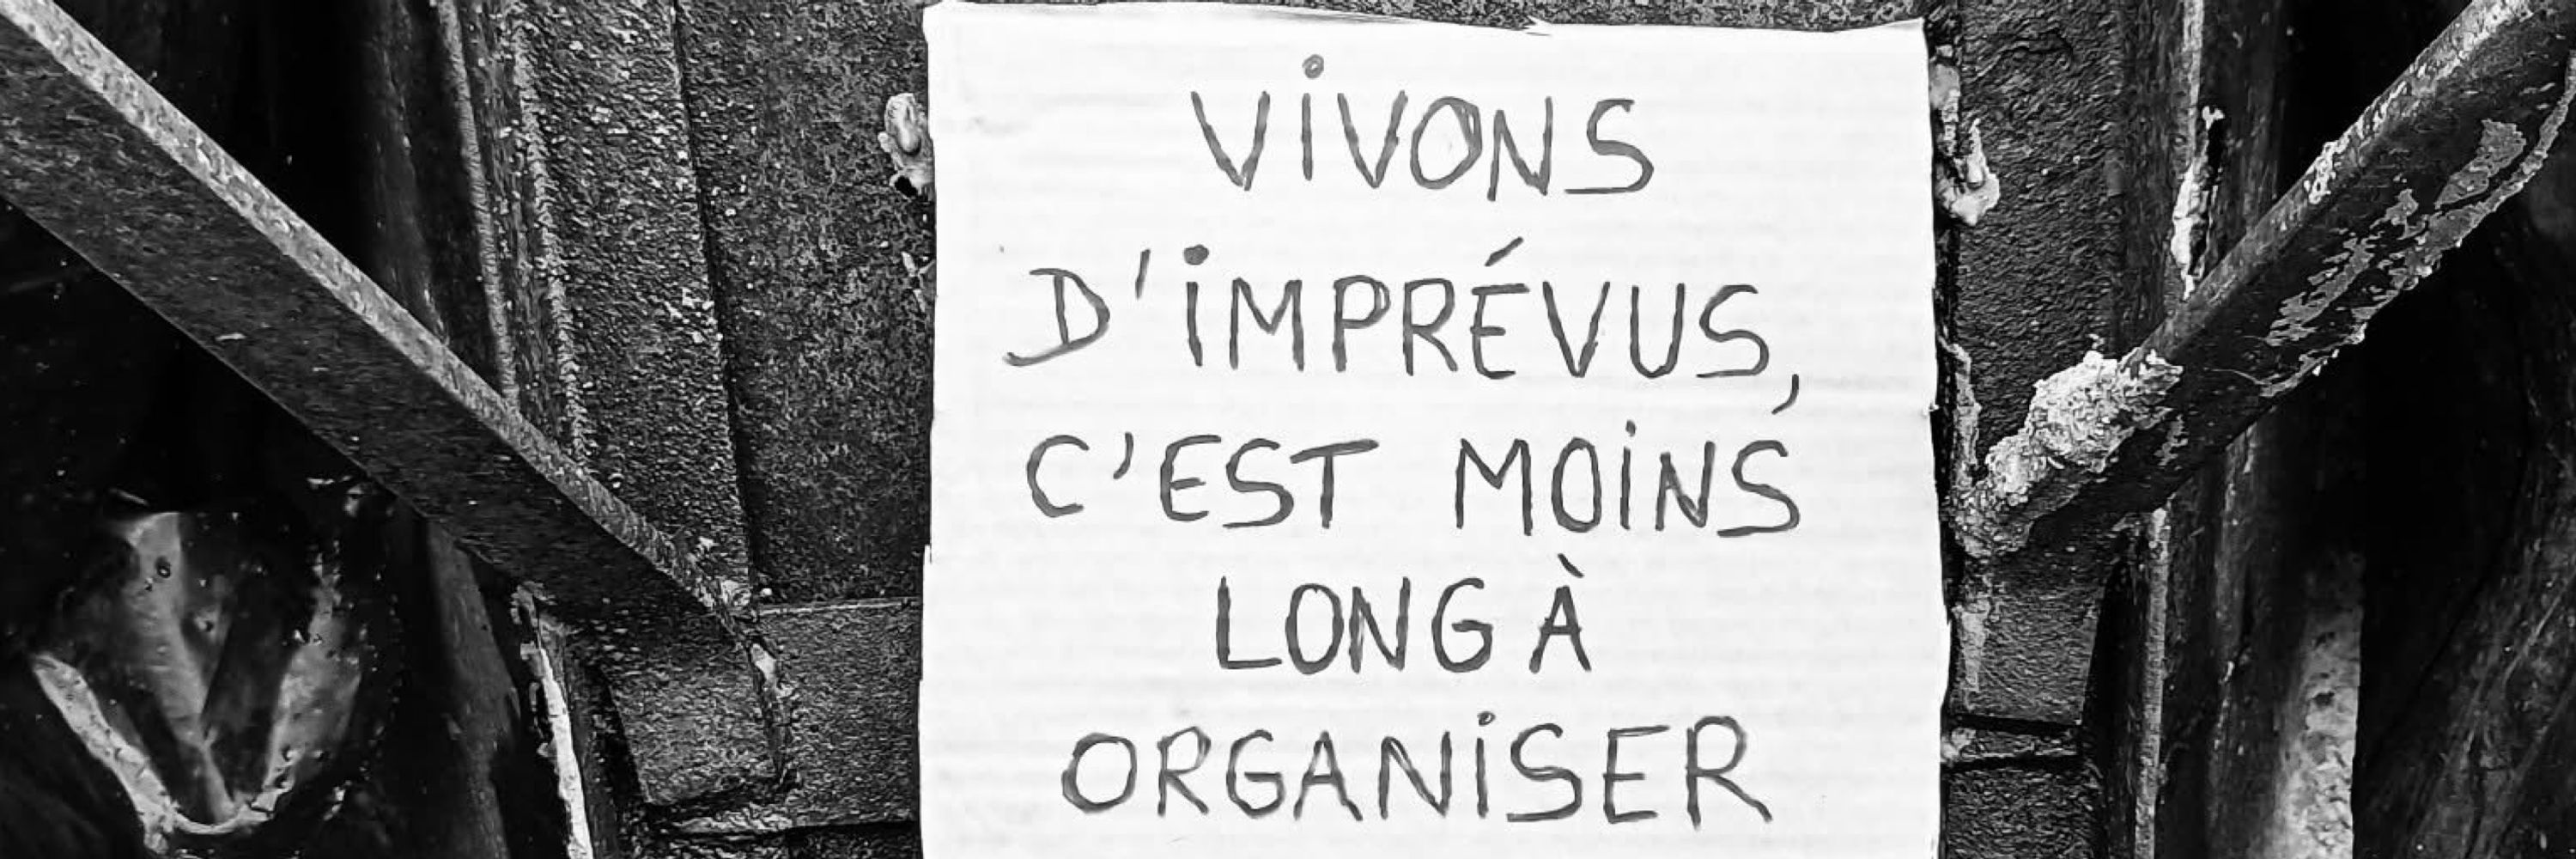 VIVONS
D'IMPRÉVUS,
C'EST MOINS
LONG À
ORGANISER